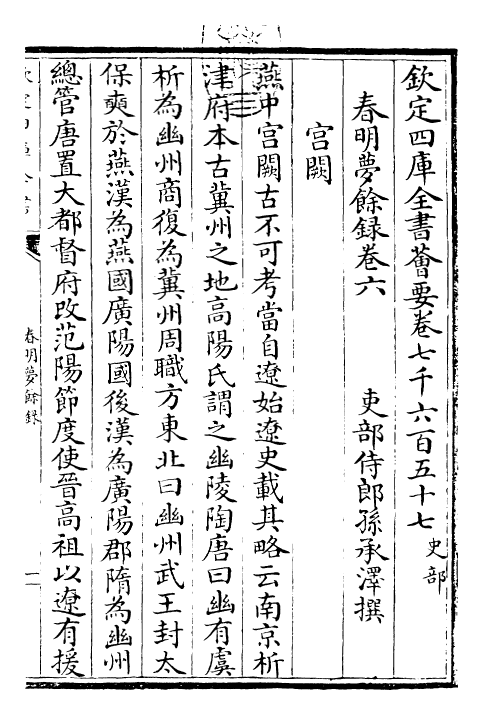 欽定四庫全書薈要卷七千六百五十七 史部
春明夢餘録卷六 吏部侍郎孫承澤撰
宫闕
燕中宫闕古不可考當自遼始遼史載其略云南京析
津府本古冀州之地高陽氏謂之幽陵陶唐曰幽有虞
析為幽州商復為冀州周職方東北曰幽州武王封太
保奭於燕漢為燕國廣陽國後漢為廣陽郡隋為幽州
總管唐置大都督府改范陽節度使晉高祖以遼有援
春明夢餘録
一